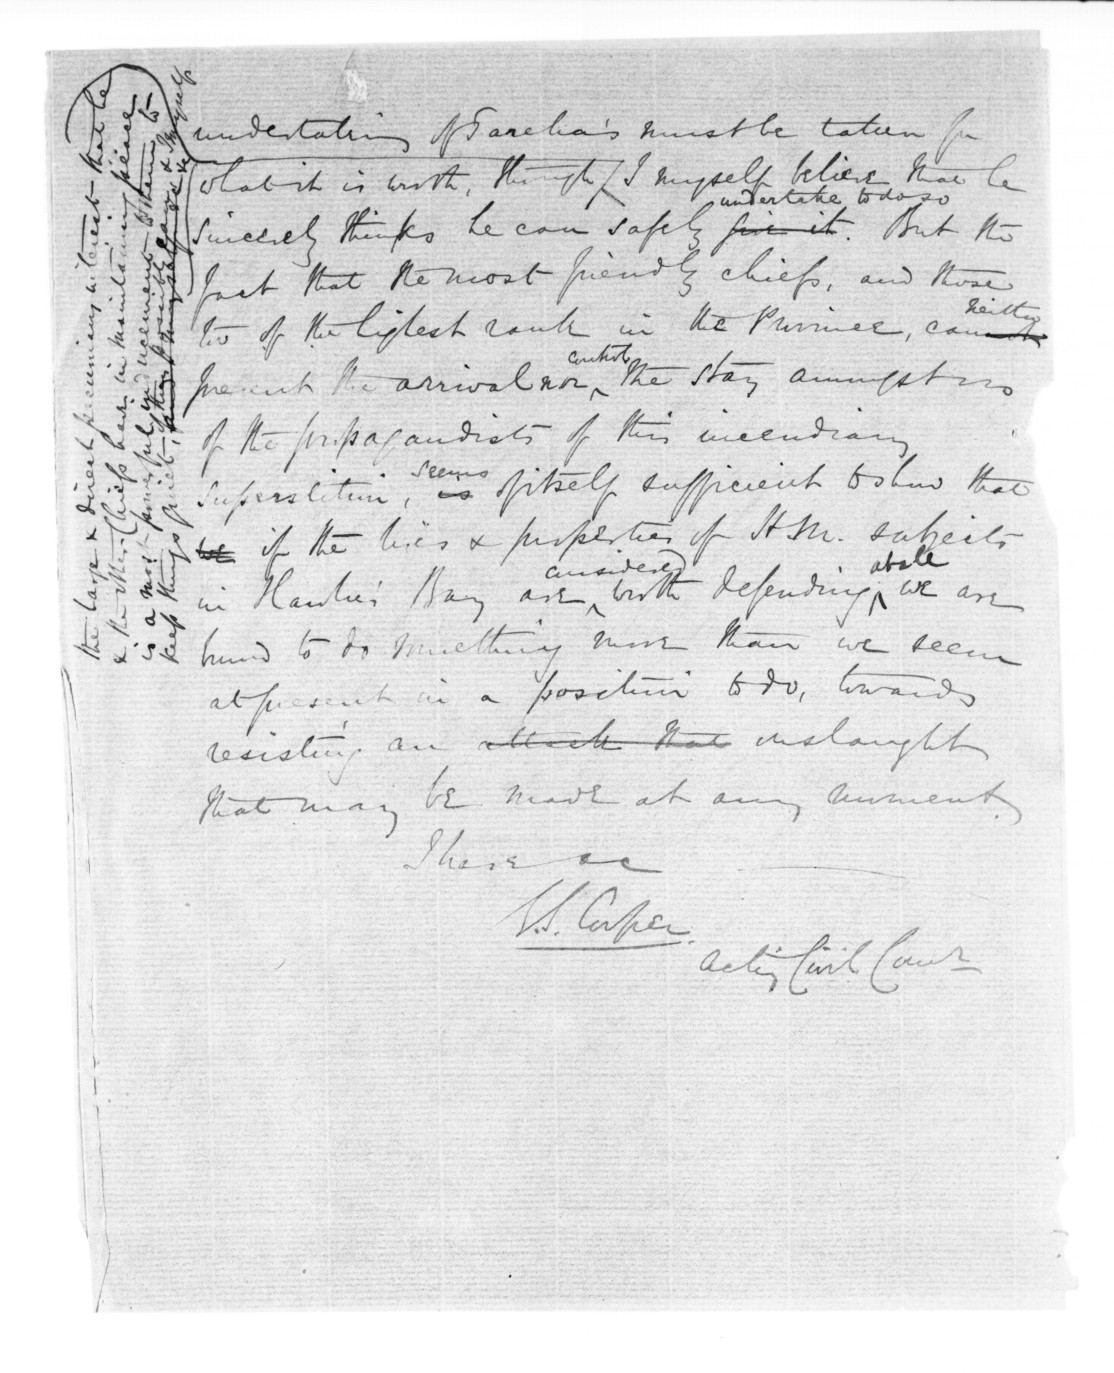 undertaking of Tareha's must be taken for
what it is worth, though / I myself believe that he
undertake to do so
sincerely thinks he can safely give it. But the
fact that the most friendly chiefs, and those
neither
too of the highest rank in the Province, cannot
control
prevent the arrival nor the stay amongst us
of the propagandists of this incendiary
seems
superstition, is of itself sufficient to show that
we if the lives & properties of H.M. subjects
considered at all
in Hawke's Bay are worth defending, we are
bound to do something more than we seem
at present in a position to do, towards
resisting an attack that onslaught
that may be made at any moment,
I have &c
G.S. Cooper.
Acting Civil Comr
the large & direct pecuniary interest that he
& the other Chiefs have in maintaining peace
is a most powerful inducement to them to
keep things quiet, if they possibly can, & myself